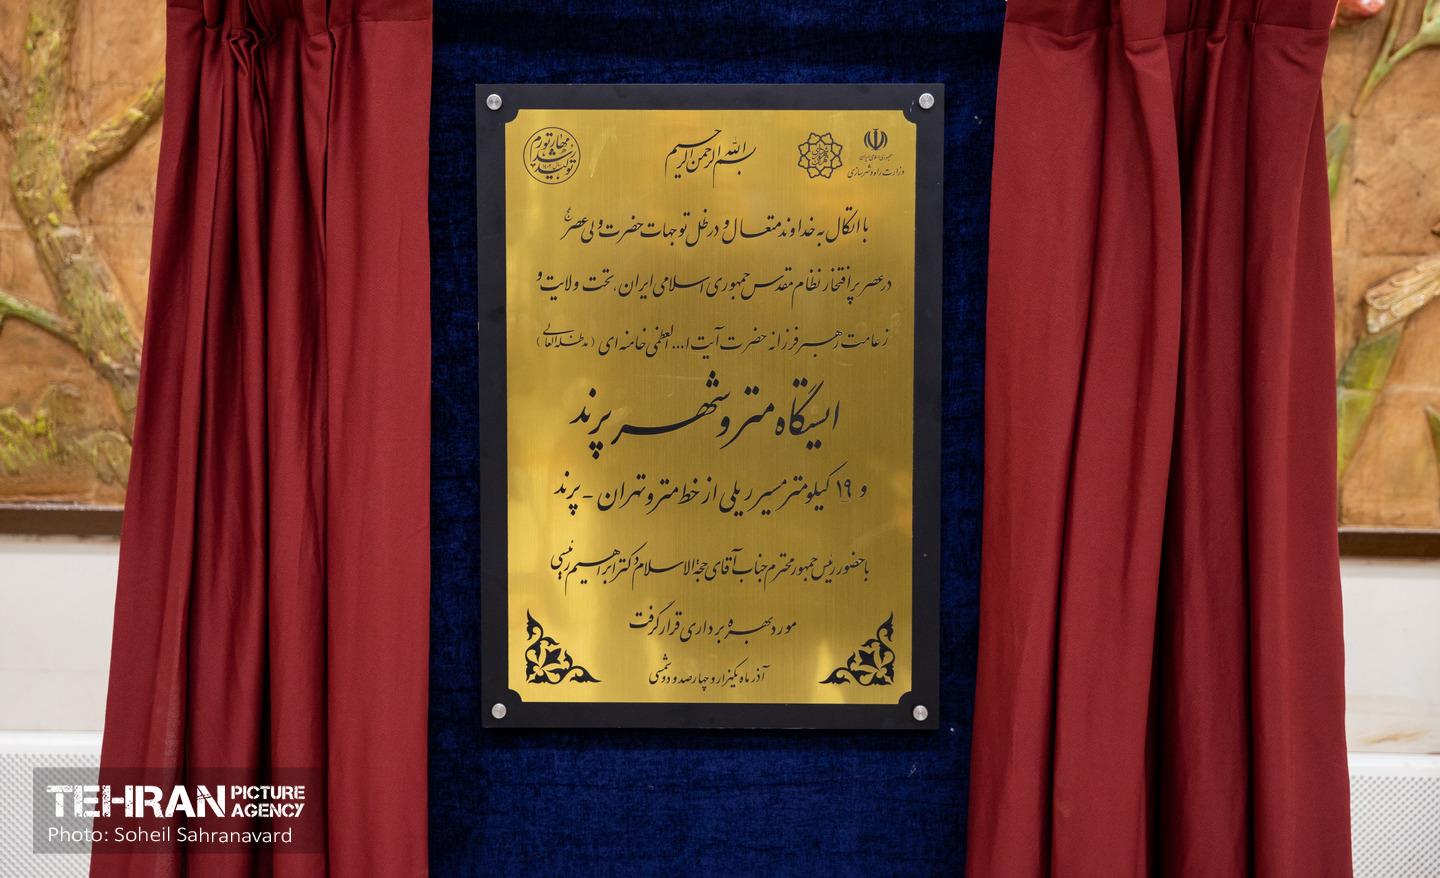 بسم الله الرحمن الرحیم
جمهوری اسلامی ایران
وزارت راه و شهرسازی
مهار تورم
رشد تولید
با اتکال به خداوند متعال و در ظل توجهات حضرت ولی عصر عج
در عصر پر افتخار نظام مقدس جمهوری اسلامی ایران، تحت ولایت و
زعامت رهبر فرزانه حضرت آیت ا... العظمی خامنه ای (مدظله العالی)
ایستگاه مترو شهر پرند
و ۱۹ کیلومتر مسیر ریلی از خط مترو تهران - پرند
با حضور رئیس جمهور محترم جناب آقای حجةالاسلام دکتر ابراهیم رئیسی
مورد بهره برداری قرار گرفت
آذر ماه یکهزار و چهارصد و دو شمسی
TEHRAN PICTURE AGENCY
Photo: Soheil Sahranavard